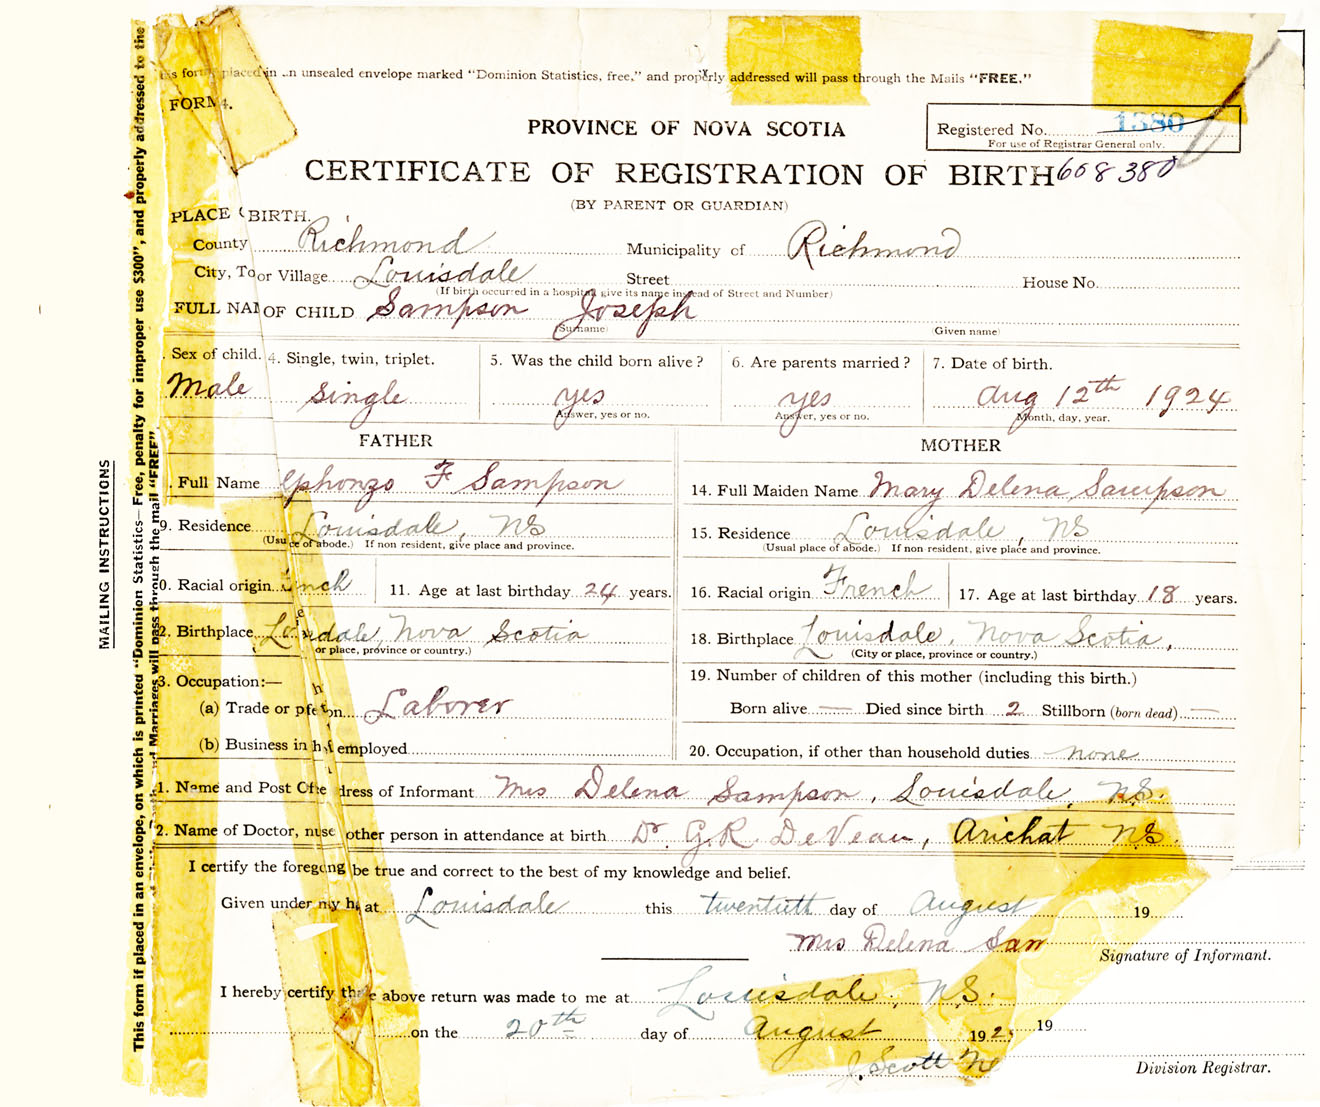 This form if placed in an envelope, on which is printed "Dominion Statistics—Free, penalty for improper use $300", and properly addressed to the
and Marriages will pass through the mail "FREE".
MAILING INSTRUCTIONS
placed in an unsealed envelope marked "Dominion Statistics, free," and properly addressed will pass through the Mails "FREE."
FORM 4.
PROVINCE OF NOVA SCOTIA
Registered No. 1380
For use of Registrar General only.
CERTIFICATE OF REGISTRATION OF BIRTH 608380
(BY PARENT OR GUARDIAN)
PLACE BIRTH.
County Richmond Municipality of Richmond
City, To or Village Louisdale Street House No.
(If birth occurred in a hospital give its name instead of Street and Number)
FULL NAM OF CHILD Sampson Joseph
(Surname) (Given name)
Sex of child. 4. Single, twin, triplet. 5. Was the child born alive? 6. Are parents married? 7. Date of birth.
Male Single yes yes Aug 12th 1924
Answer, yes or no. Answer, yes or no. Month, day, year.
FATHER MOTHER
Full Name lphonzo F Sampson 14. Full Maiden Name Mary Delena Sampson
9. Residence Louisdale, NS 15. Residence Louisdale, NS
(Usu ce of abode.) If non resident, give place and province. (Usual place of abode.) If non-resident, give place and province.
0. Racial origin nch 11. Age at last birthday 24 years. 16. Racial origin French 17. Age at last birthday 18 years.
2. Birthplace Lo sdale, Nova Scotia 18. Birthplace Louisdale, Nova Scotia,
or place, province or country.) (City or place, province or country.)
3. Occupation:— 19. Number of children of this mother (including this birth.)
(a) Trade or on Laborer Born alive — Died since birth 2 Stillborn (born dead) —
(b) Business in employed 20. Occupation, if other than household duties none
1. Name and Post dress of Informant Mrs Delena Sampson, Louisdale, N.S.
2. Name of Doctor, other person in attendance at birth Dr. G.R. DeVeau, Arichat NS.
I certify the foregoing be true and correct to the best of my knowledge and belief.
Given under my h at Louisdale this twentieth day of August 19
Mrs Delena Sam
Signature of Informant.
I hereby certify the above return was made to me at Louisdale, N.S.
on the 20th day of August 192 19
J. Scott
Division Registrar.